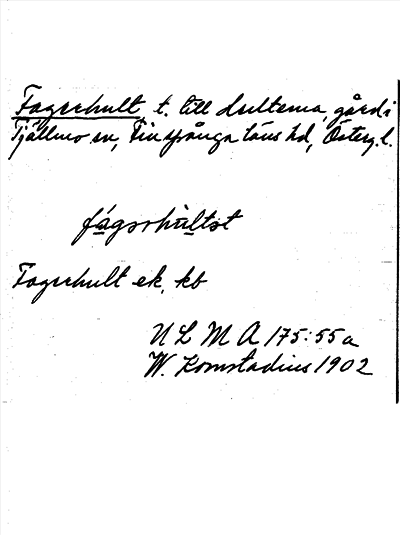 Fagerhult, t. till hultena, gård i
Tjällmo sn, Finspånga läns hd, Österg. l.
Fagerhult ek, kb
U L M A 175:55 a
W. Komstadius 1902